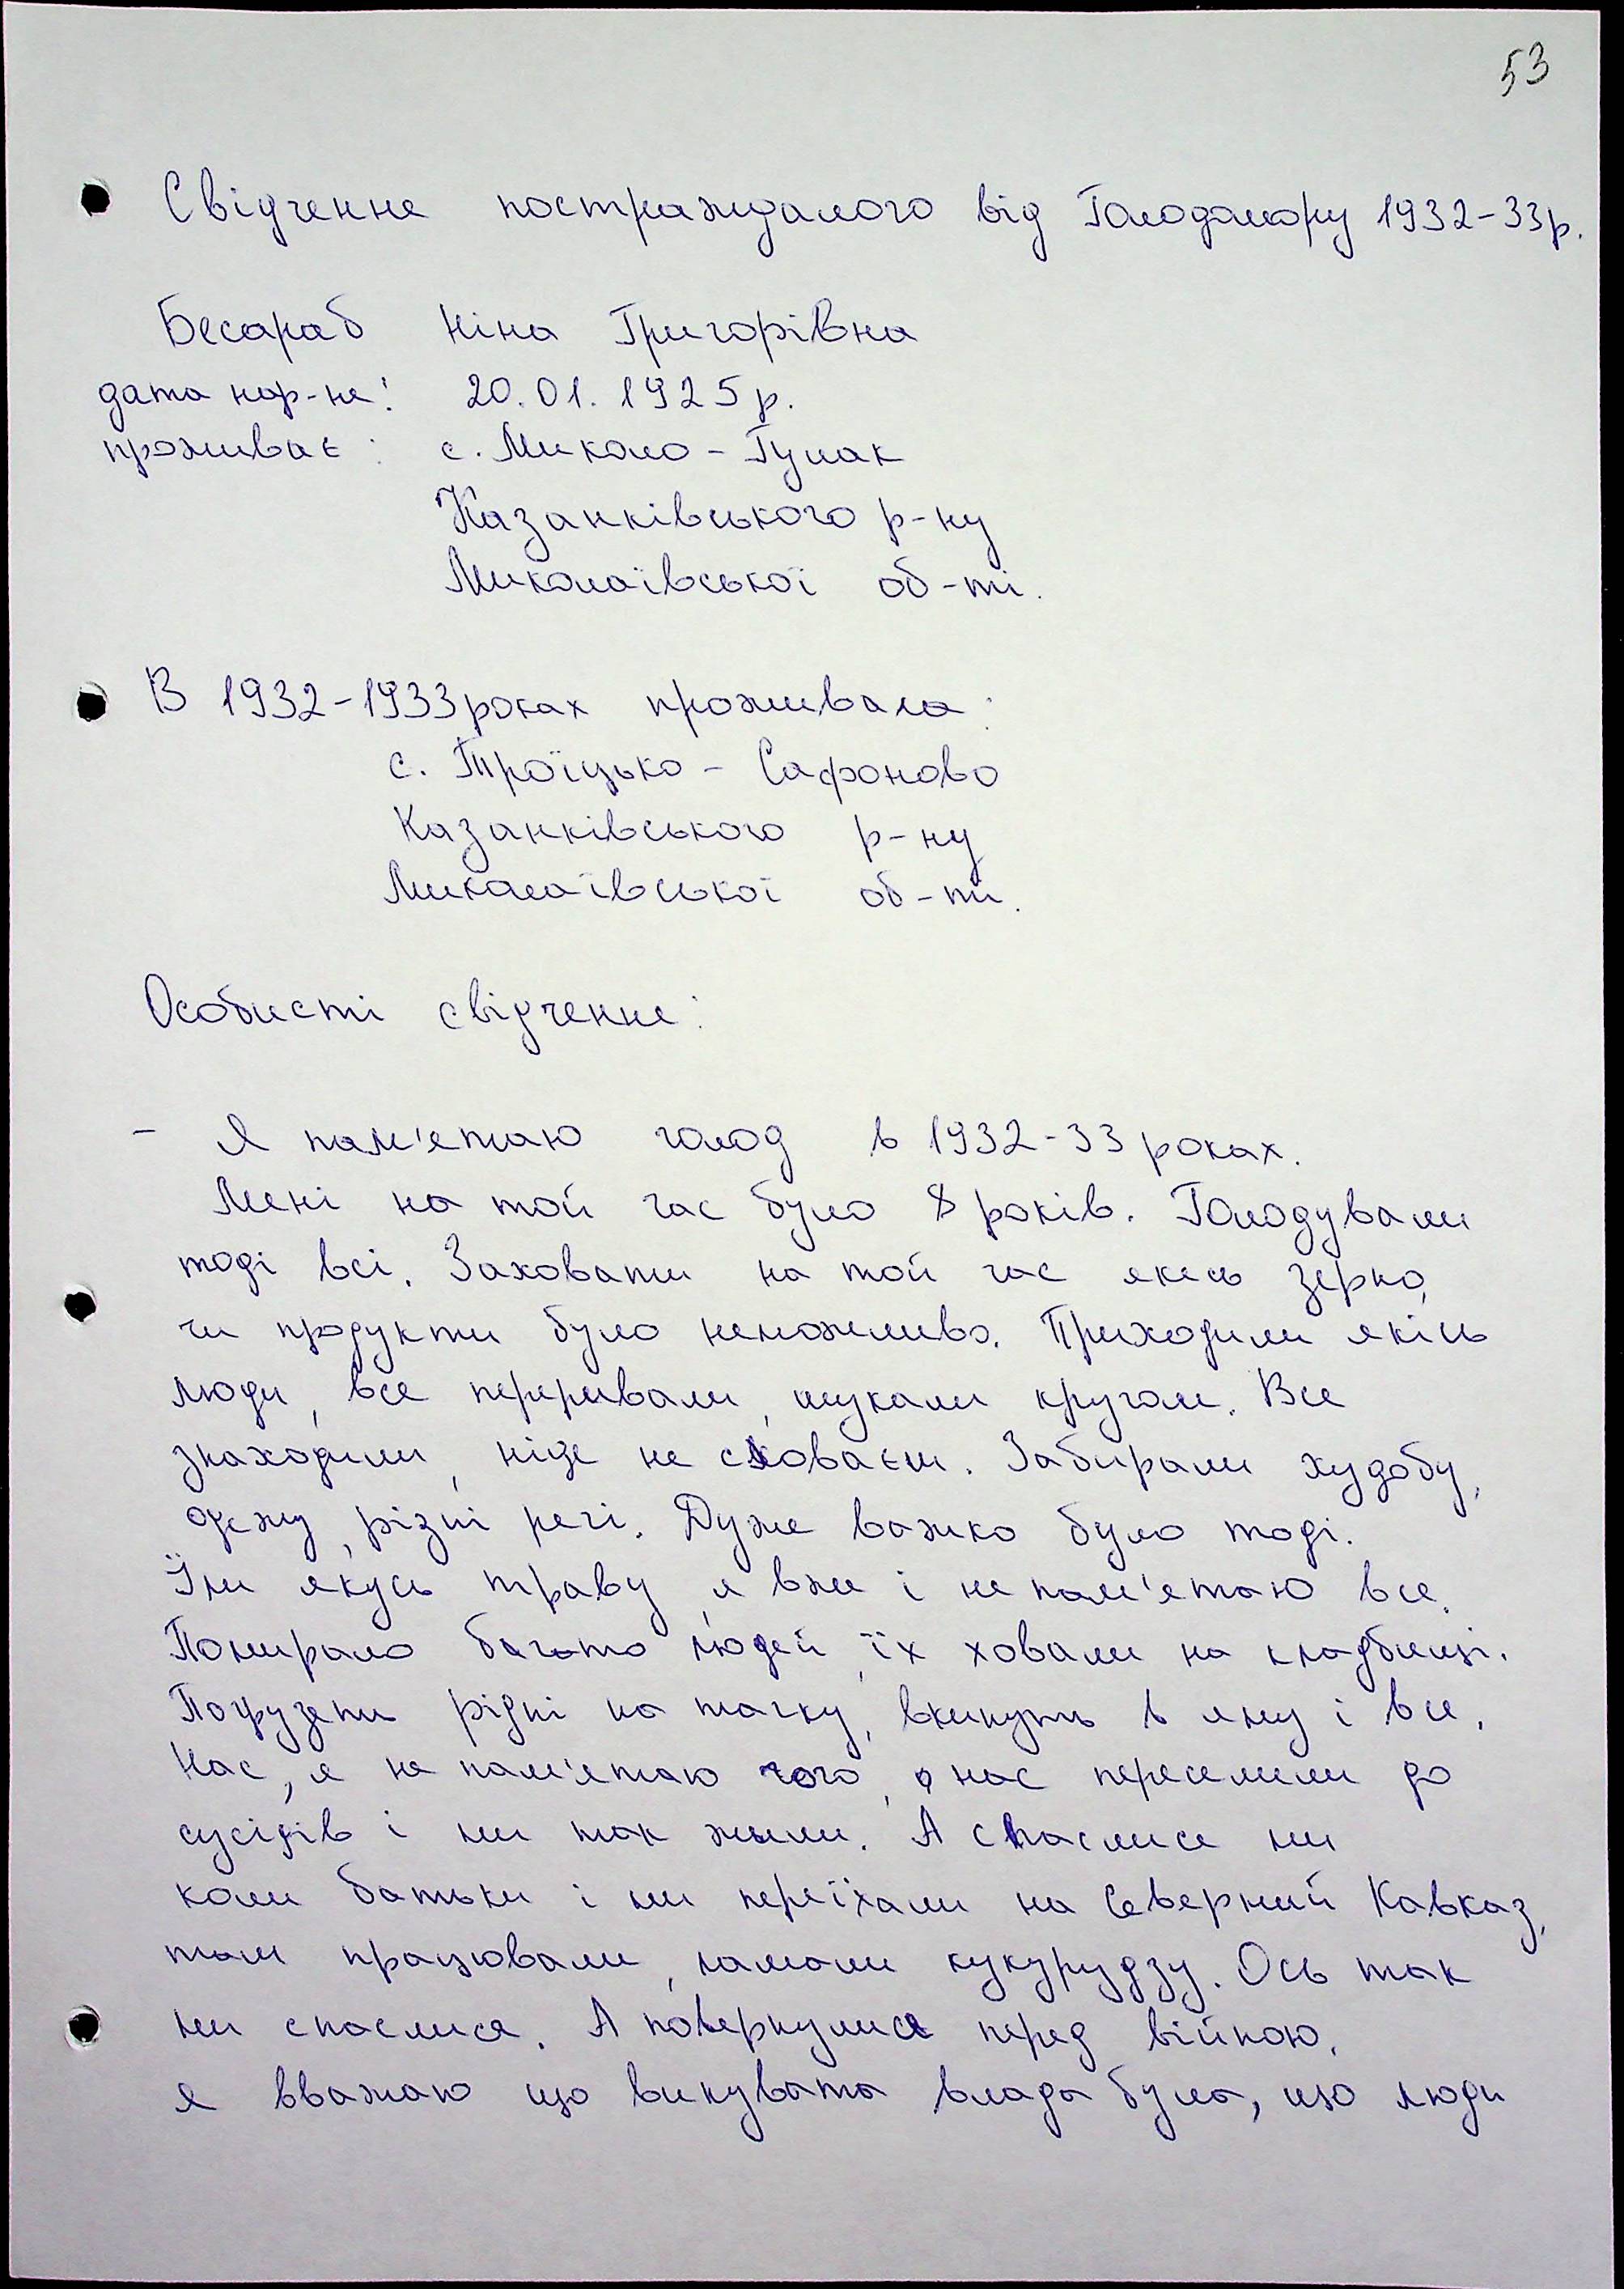 53
Свідчення постраждалого від Голодомору 1932-33р.
Бесараб Ніна Григорівна
дата нар-ня: 20.01.1925р.
проживає: с. Миколо-Гулак
Казанківського р-ну
Миколаївської об-ті.
В 1932-1933роках проживала:
с. Троїцько-Сафоново
Казанківського р-ну
Миколаївської об-ті.
Особисті свідчення:
- Я пам'ятаю голод в 1932-33 роках.
Мені на той час було 8 років. Голодували
тоді всі. Заховати на той час якесь зерно,
чи продукти було неможливо. Приходили якісь
люди, все переривали, шукали кругом. Все
знаходили, ніде не сховаєш. Забирали худобу,
одежу, різні речі. Дуже важко було тоді.
Їли якусь траву, я вже і не пам'ятаю все.
Помирало багато людей, їх ховали на кладбищі.
Погрузять рідні на тачку, вкинуть в яму і все.
Нас, я не пам'ятаю чого, о нас переселили до
сусідів і ми так жили. А спаслися ми
коли батьки і ми переїхали на Северний Кавказ,
там працювали, ламали кукурудзу. Ось так
ми спаслися. А повернулися перед війною.
Я вважаю що винувата влада була, що люди